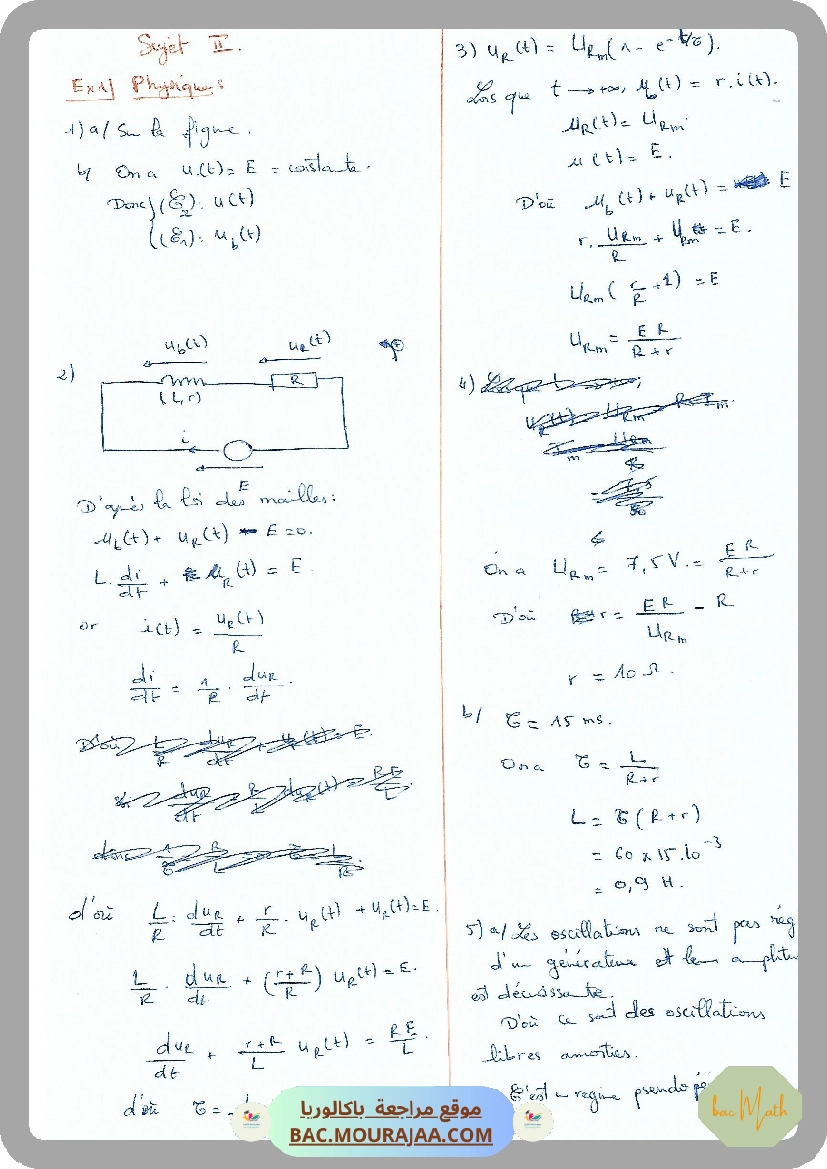 Sujet II.
Ex1) Physique:
1) a/ Sur la figure.
b/ On a u(t) = E = constante.
Donc (ℰ2): u(t)
(ℰ1): ub(t)
2)
ub(t) uR(t)
R
(L, r)
i
E
D'après la loi des mailles:
ub(t) + uR(t) - E = 0.
L. di/dt + uR(t) = E.
or i(t) = uR(t)/R
di/dt = 1/R . duR/dt.
d'où L/R . duR/dt + r/R . uR(t) + uR(t) = E.
L/R . duR/dt + ((r+R)/R) uR(t) = E.
duR/dt + (r+R)/L uR(t) = RE/L.
d'où τ =
3) uR(t) = URm(1 - e^-t/τ).
Lors que t → +∞, ub(t) = r.i(t).
uR(t) = URm.
u(t) = E.
D'où ub(t) + uR(t) = E
r. URm/R + URm = E.
URm( r/R + 1) = E
URm = ER/(R+r)
4)
On a URm = 7,5 V. = ER/(R+r)
D'où r = ER/URm - R
r = 10 Ω.
b/ τ = 15 ms.
On a τ = L/(R+r)
L = τ(R+r)
= 60 x 15.10^-3
= 0,9 H.
5) a/ Les oscillations ne sont pas
d'un générateur et leur
est décroissante.
D'où ce sont des oscillations
libres amorties.
C'est un régime pseudo
موقع مراجعة باكالوريا
BAC.MOURAJAA.COM
bac Math